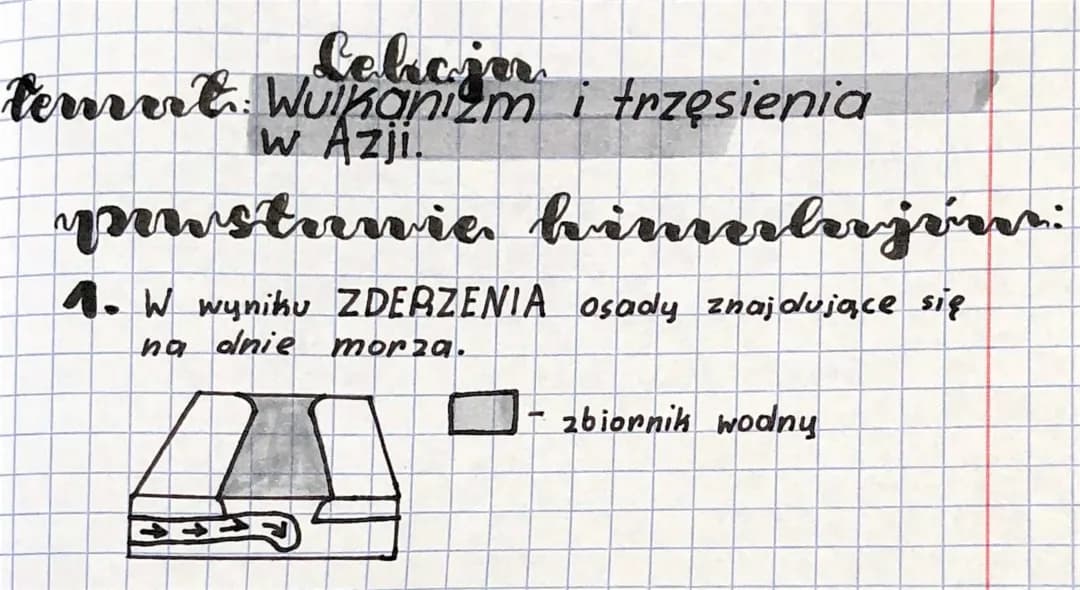 Lekcja
Temat: Wulkanizm i trzęsienia
w Azji.
powstanie himalajów:
1. W wyniku ZDERZENIA osady znajdujące się
na dnie morza.
- zbiornik wodny